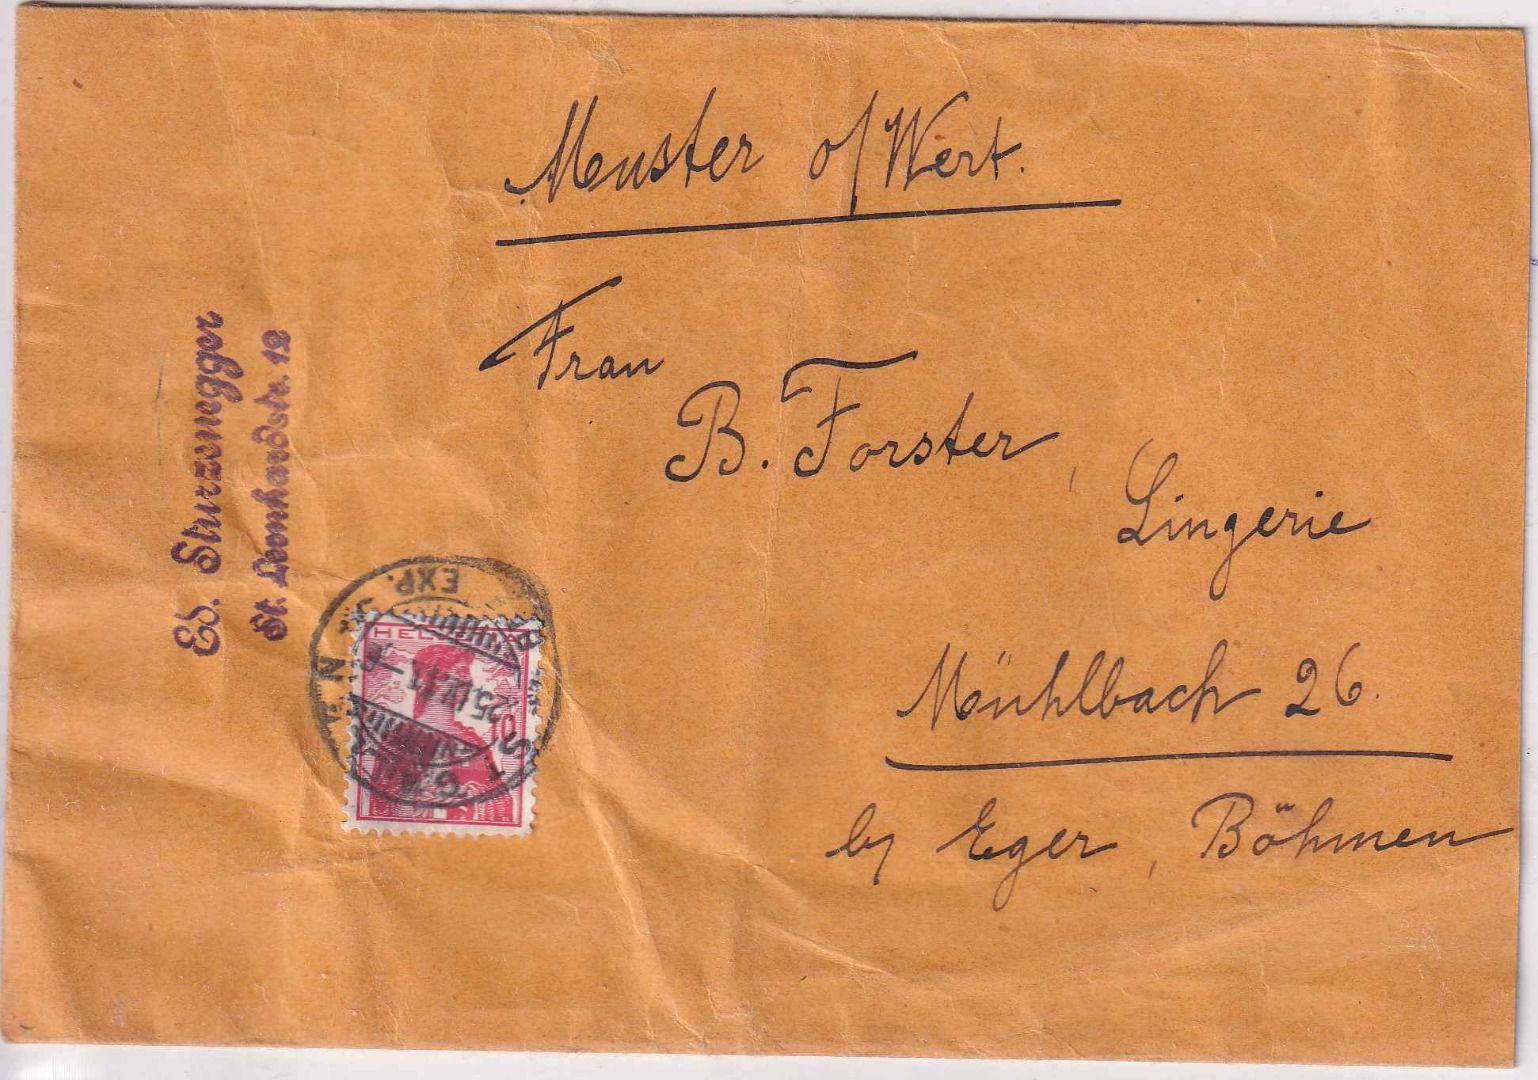 Muster o/Wert.
Frau
B. Forster,
Lingerie
Mühlbach 26.
by Eger, Böhmen
Ed. Sturzenegger
St. Leonhardstr. 12
HELVETIA
10
ST. GALLEN
BRF. EXP.